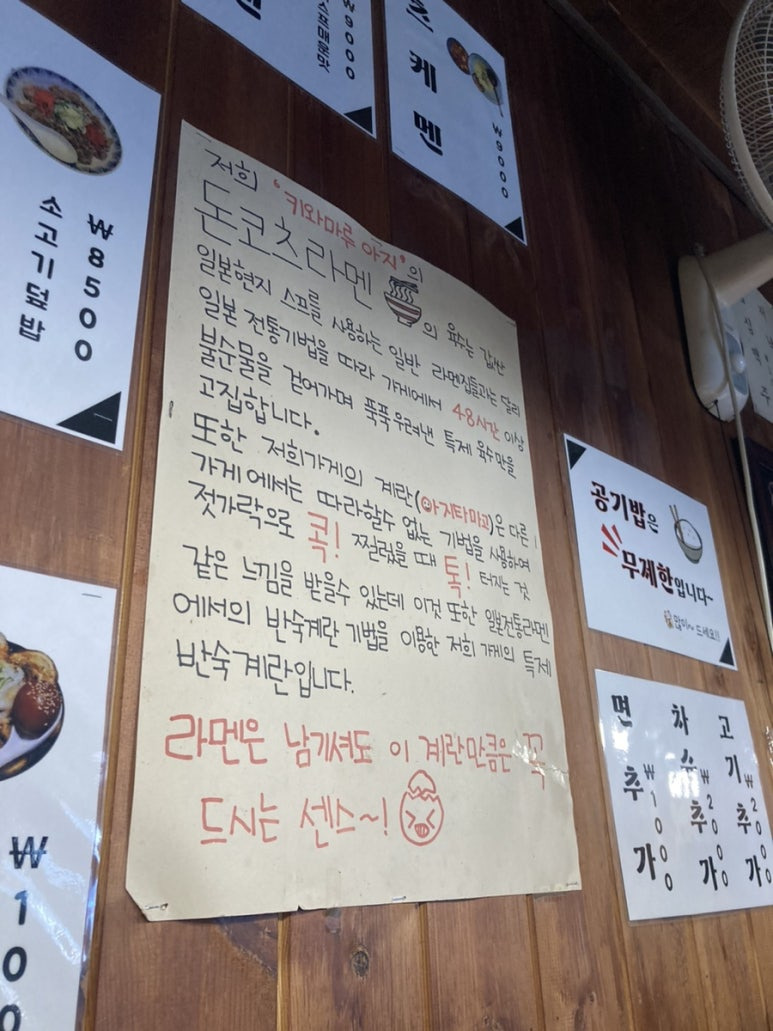 ₩9000
츠케멘
₩9000
₩8500
소고기덮밥
저희 '키와마루아지'의
돈코츠라멘의 육수는 값싼
일본현지 스프를 사용하는 일반 라멘집들과는 달리
일본 전통기법을 따라 가게에서 48시간 이상
불순물을 걷어가며 푹푹우려낸 특제 육수만을
고집합니다.
또한 저희가게의 계란(아지타마고)은 다른
가게에서는 따라할수 없는 기법을 사용하여
젓가락으로 콕! 찔렀을때 톡! 터지는 것
같은 느낌을 받을수 있는데 이것 또한 일본전통라멘
에서의 반숙계란 기법을 이용한 저희 가게의 특제
반숙계란입니다.
라멘은 남기셔도 이 계란만큼은 꼭
드시는 센스~!
공기밥은
무제한입니다~
많이~ 드세요!!
면추가 ₩1000
차수추가 ₩2000
고기추가 ₩2000
₩100